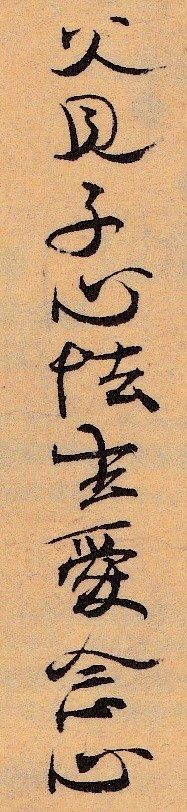 父見子心怯生愛念心